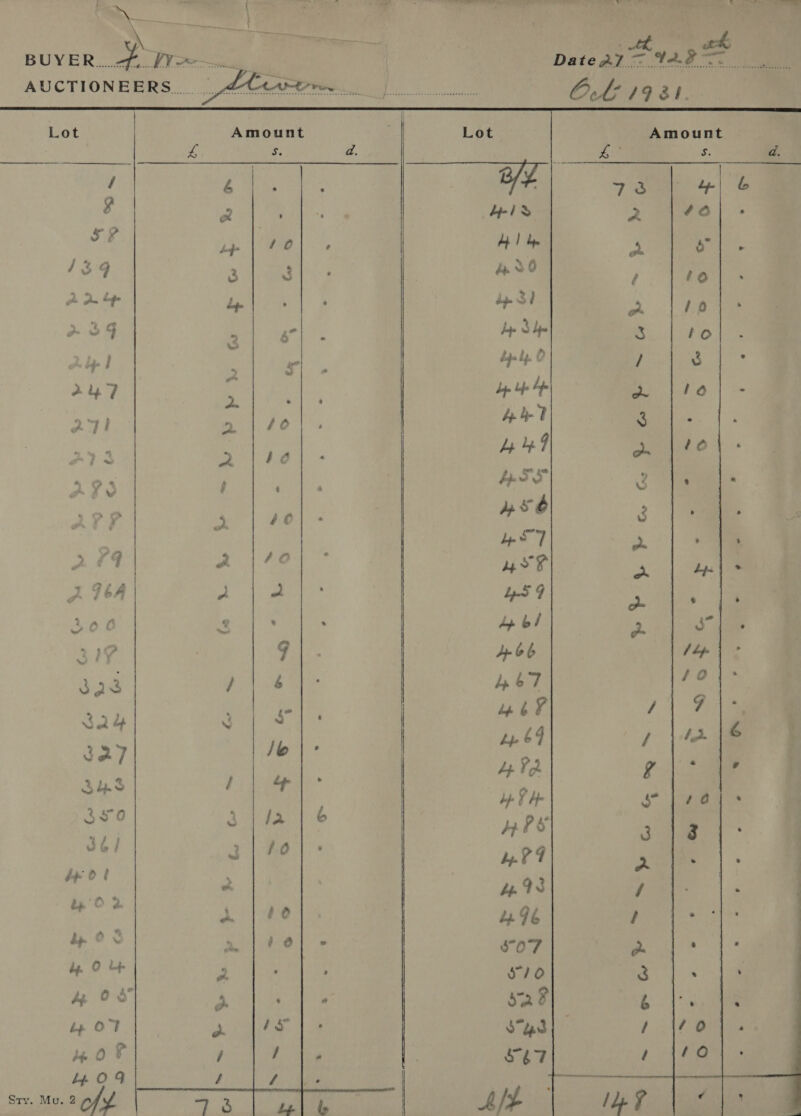 BUYER
Date 27th - 28th
AUCTIONEERS Stevens
Oct 1931.
Lot Amount Lot Amount
£ s. d. £ s. d.
1 6 . . B/f 73 4 6
8 2 . . 413 2 10 .
58 4 10 . 414 2 5 .
139 3 3 . 430 1 10 .
224 4 . . 431 2 10 .
239 3 5 . 434 3 10 .
241 2 5 . 440 1 3 .
247 2 . . 444 2 10 .
271 2 10 . 447 3 . .
273 2 10 . 449 2 10 .
283 1 . . 455 3 . .
288 2 10 . 456 3 . .
289 2 10 . 457 2 . .
296A 2 2 . 458 2 4 .
300 3 . . 459 2 . .
318 9 . 461 2 5 .
323 1 6 . 466 14 .
324 3 5 . 467 10 .
327 16 . 468 1 9 .
343 1 4 . 469 1 12 6
350 3 12 6 482 8 . .
361 3 10 . 484 5 10 .
401 2 485 3 3 .
402 2 10 . 489 2 . .
403 2 10 . 493 1 . .
404 2 . . 496 1 . .
405 2 . . 507 2 . .
407 2 15 . 510 3 . .
408 1 1 . 528 6 . .
409 1 1 . 543 1 10 .
567 1 10 .
Sty. Mu. 2 c/f 73 4 6 148 . .